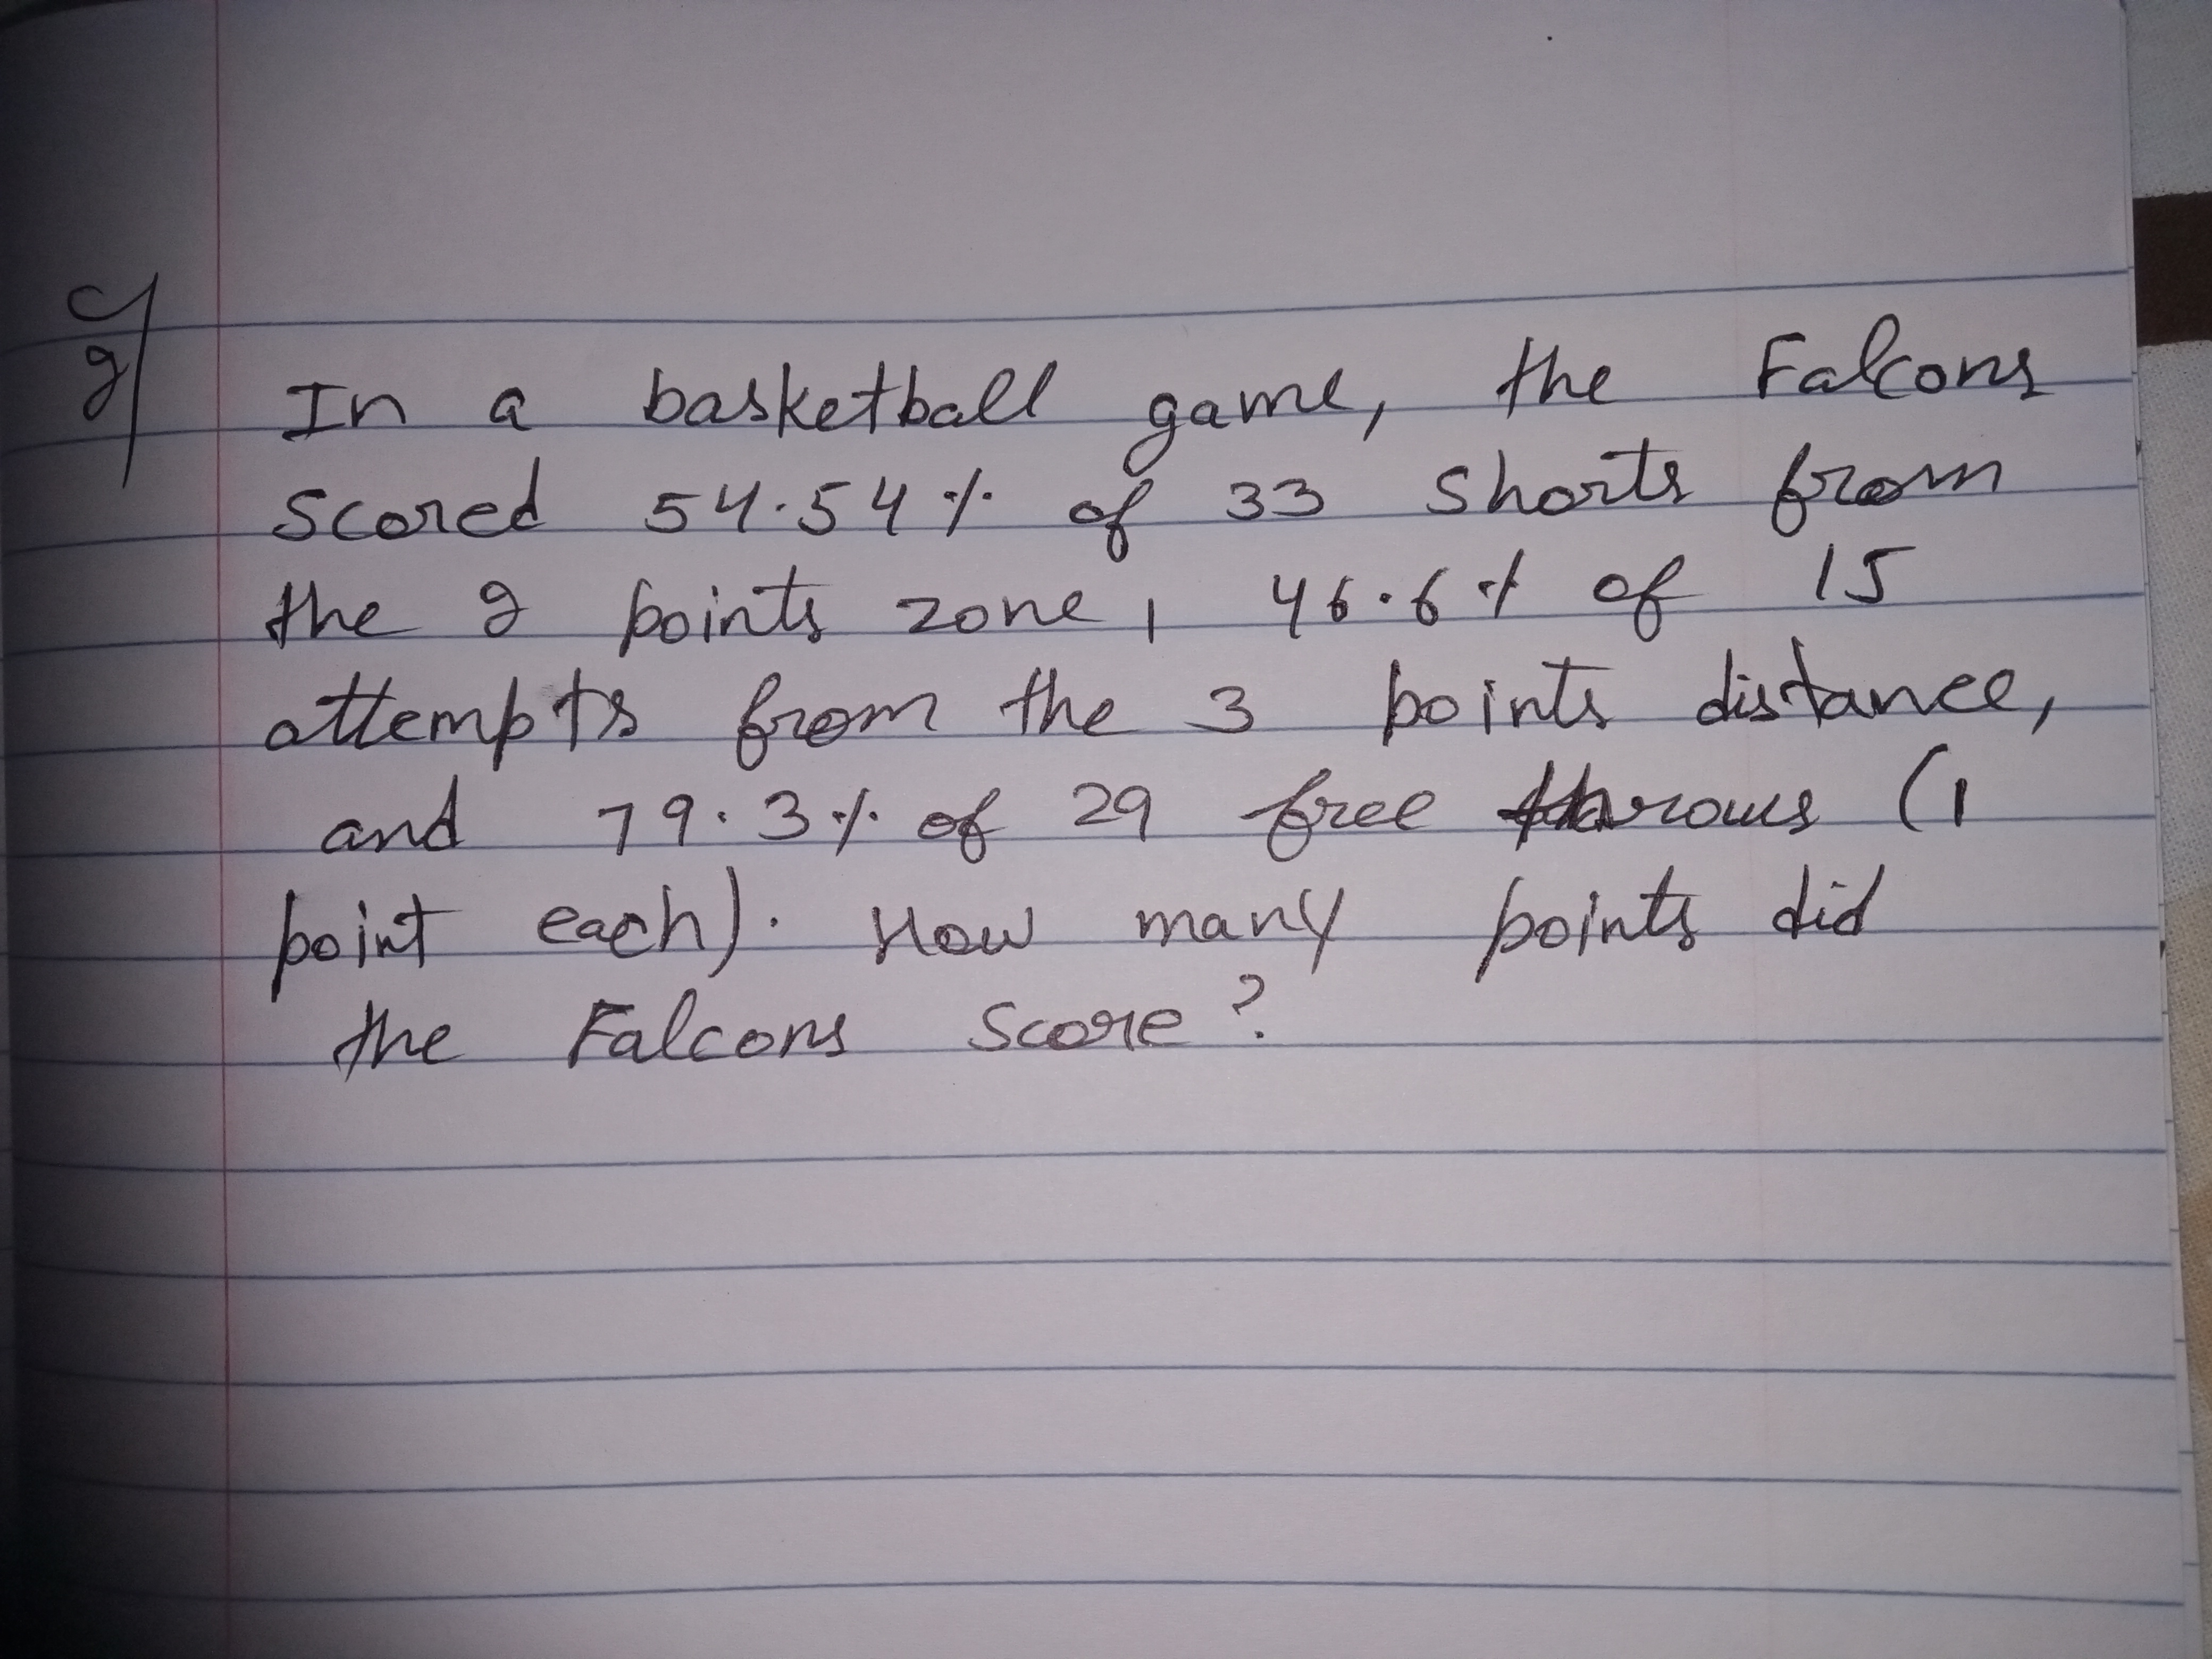 2
In a basketball game, the Falcons
scored 54.54% of 33 shorts from
the 2 points zone, 46.6% of 15
attempts from the 3 points distance,
and 79.3% of 29 free throws (1
point each). How many points did
the Falcons score?